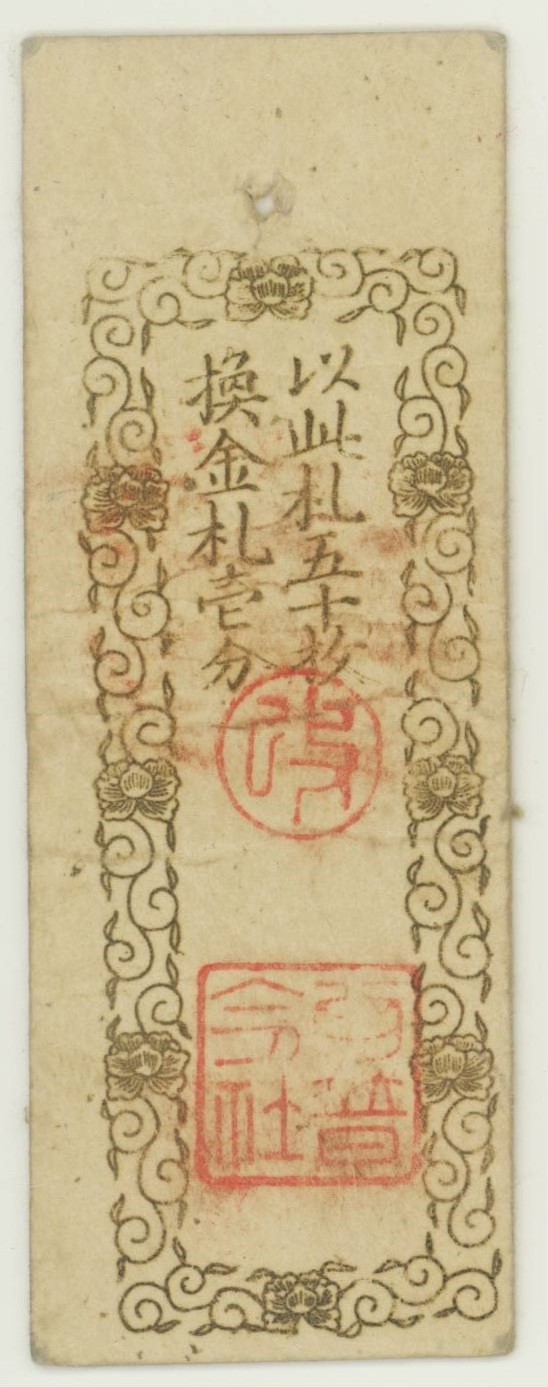 以此札五十枚
換金札壱分